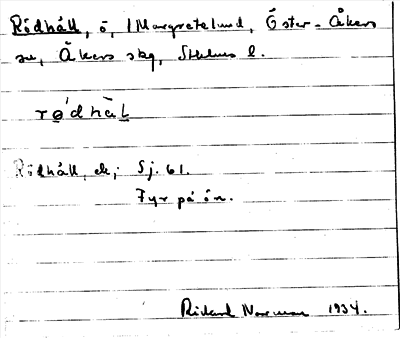 Rödhåll, ö, Margretelund, Öster-Åkers
sn, Åkers skg, Sthlms l.
rǿdhàl
Rödhåll, ek; Sj. 61.
Fyr på ön.
Rickard Norrman 1934.